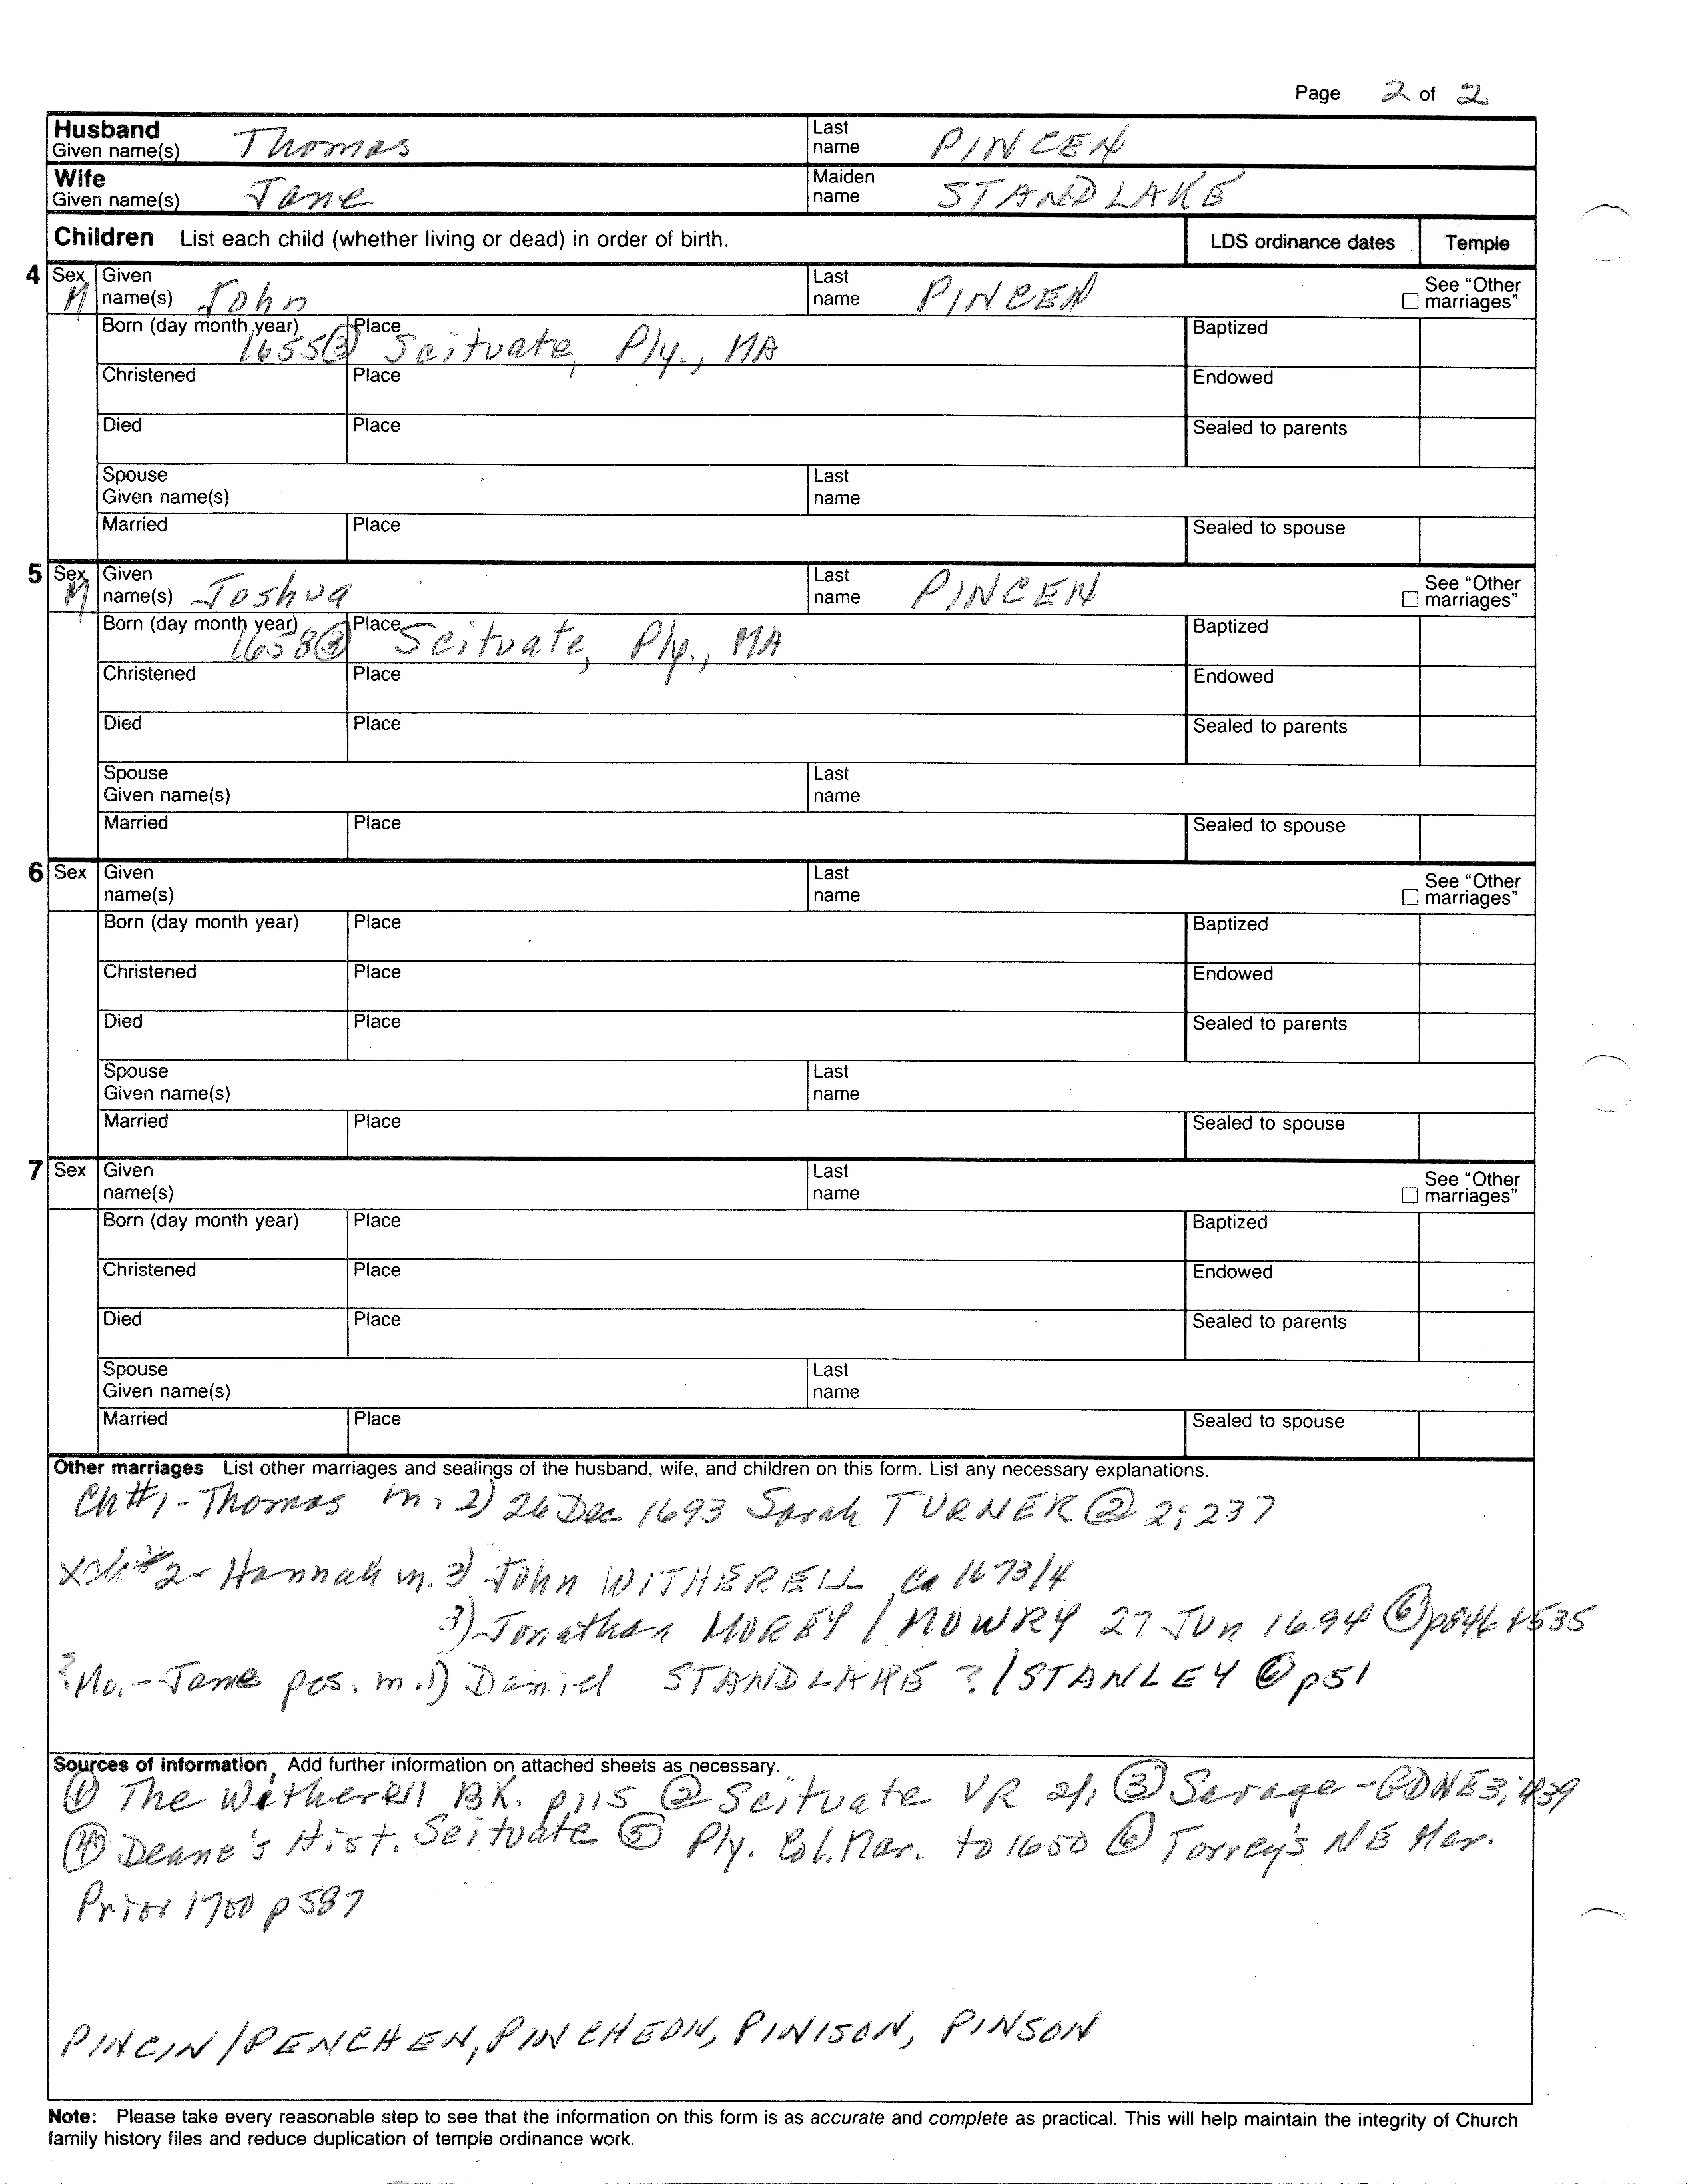 Page 2 of 2
Husband Given name(s) Thomas Last name PINCEN
Wife Given name(s) Jane Maiden name STANDLAKE
Children List each child (whether living or dead) in order of birth. LDS ordinance dates Temple
4 Sex M Given name(s) John Last name PINCEN See "Other marriages"
Born (day month year) 1655③ Place Scituate, Ply., MA Baptized
Christened Place Endowed
Died Place Sealed to parents
Spouse Given name(s) Last name
Married Place Sealed to spouse
5 Sex M Given name(s) Joshua Last name PINCEN See "Other marriages"
Born (day month year) 1658③ Place Scituate, Ply., MA Baptized
Christened Place Endowed
Died Place Sealed to parents
Spouse Given name(s) Last name
Married Place Sealed to spouse
6 Sex Given name(s) Last name See "Other marriages"
Born (day month year) Place Baptized
Christened Place Endowed
Died Place Sealed to parents
Spouse Given name(s) Last name
Married Place Sealed to spouse
7 Sex Given name(s) Last name See "Other marriages"
Born (day month year) Place Baptized
Christened Place Endowed
Died Place Sealed to parents
Spouse Given name(s) Last name
Married Place Sealed to spouse
Other marriages List other marriages and sealings of the husband, wife, and children on this form. List any necessary explanations.
Ch#1-Thomas m. 2) 26 Dec 1693 Sarah TURNER ② 2;237
XCh#2-Hannah m. 2) John WITHERELL Ca 1673/4
3) Jonathan MOREY / MOWRY 27 Jun 1694 ⑥ p846 + 535
?Mo.-Jane pos. m.1) Daniel STANDLAKE ? / STANLEY ⑥ p51
Sources of information Add further information on attached sheets as necessary.
① The Witherell BK. p115 ② Scituate VR 2/; ③ Savage-GDNE3;439
④ Deane's Hist. Scituate ⑤ Ply. Col. Mar. to 1650 ⑥ Torrey's NE Mar.
Prior 1700 p587
PINCIN / PENCHEN, PINCHEON, PINISON, PINSON
Note: Please take every reasonable step to see that the information on this form is as accurate and complete as practical. This will help maintain the integrity of Church
family history files and reduce duplication of temple ordinance work.